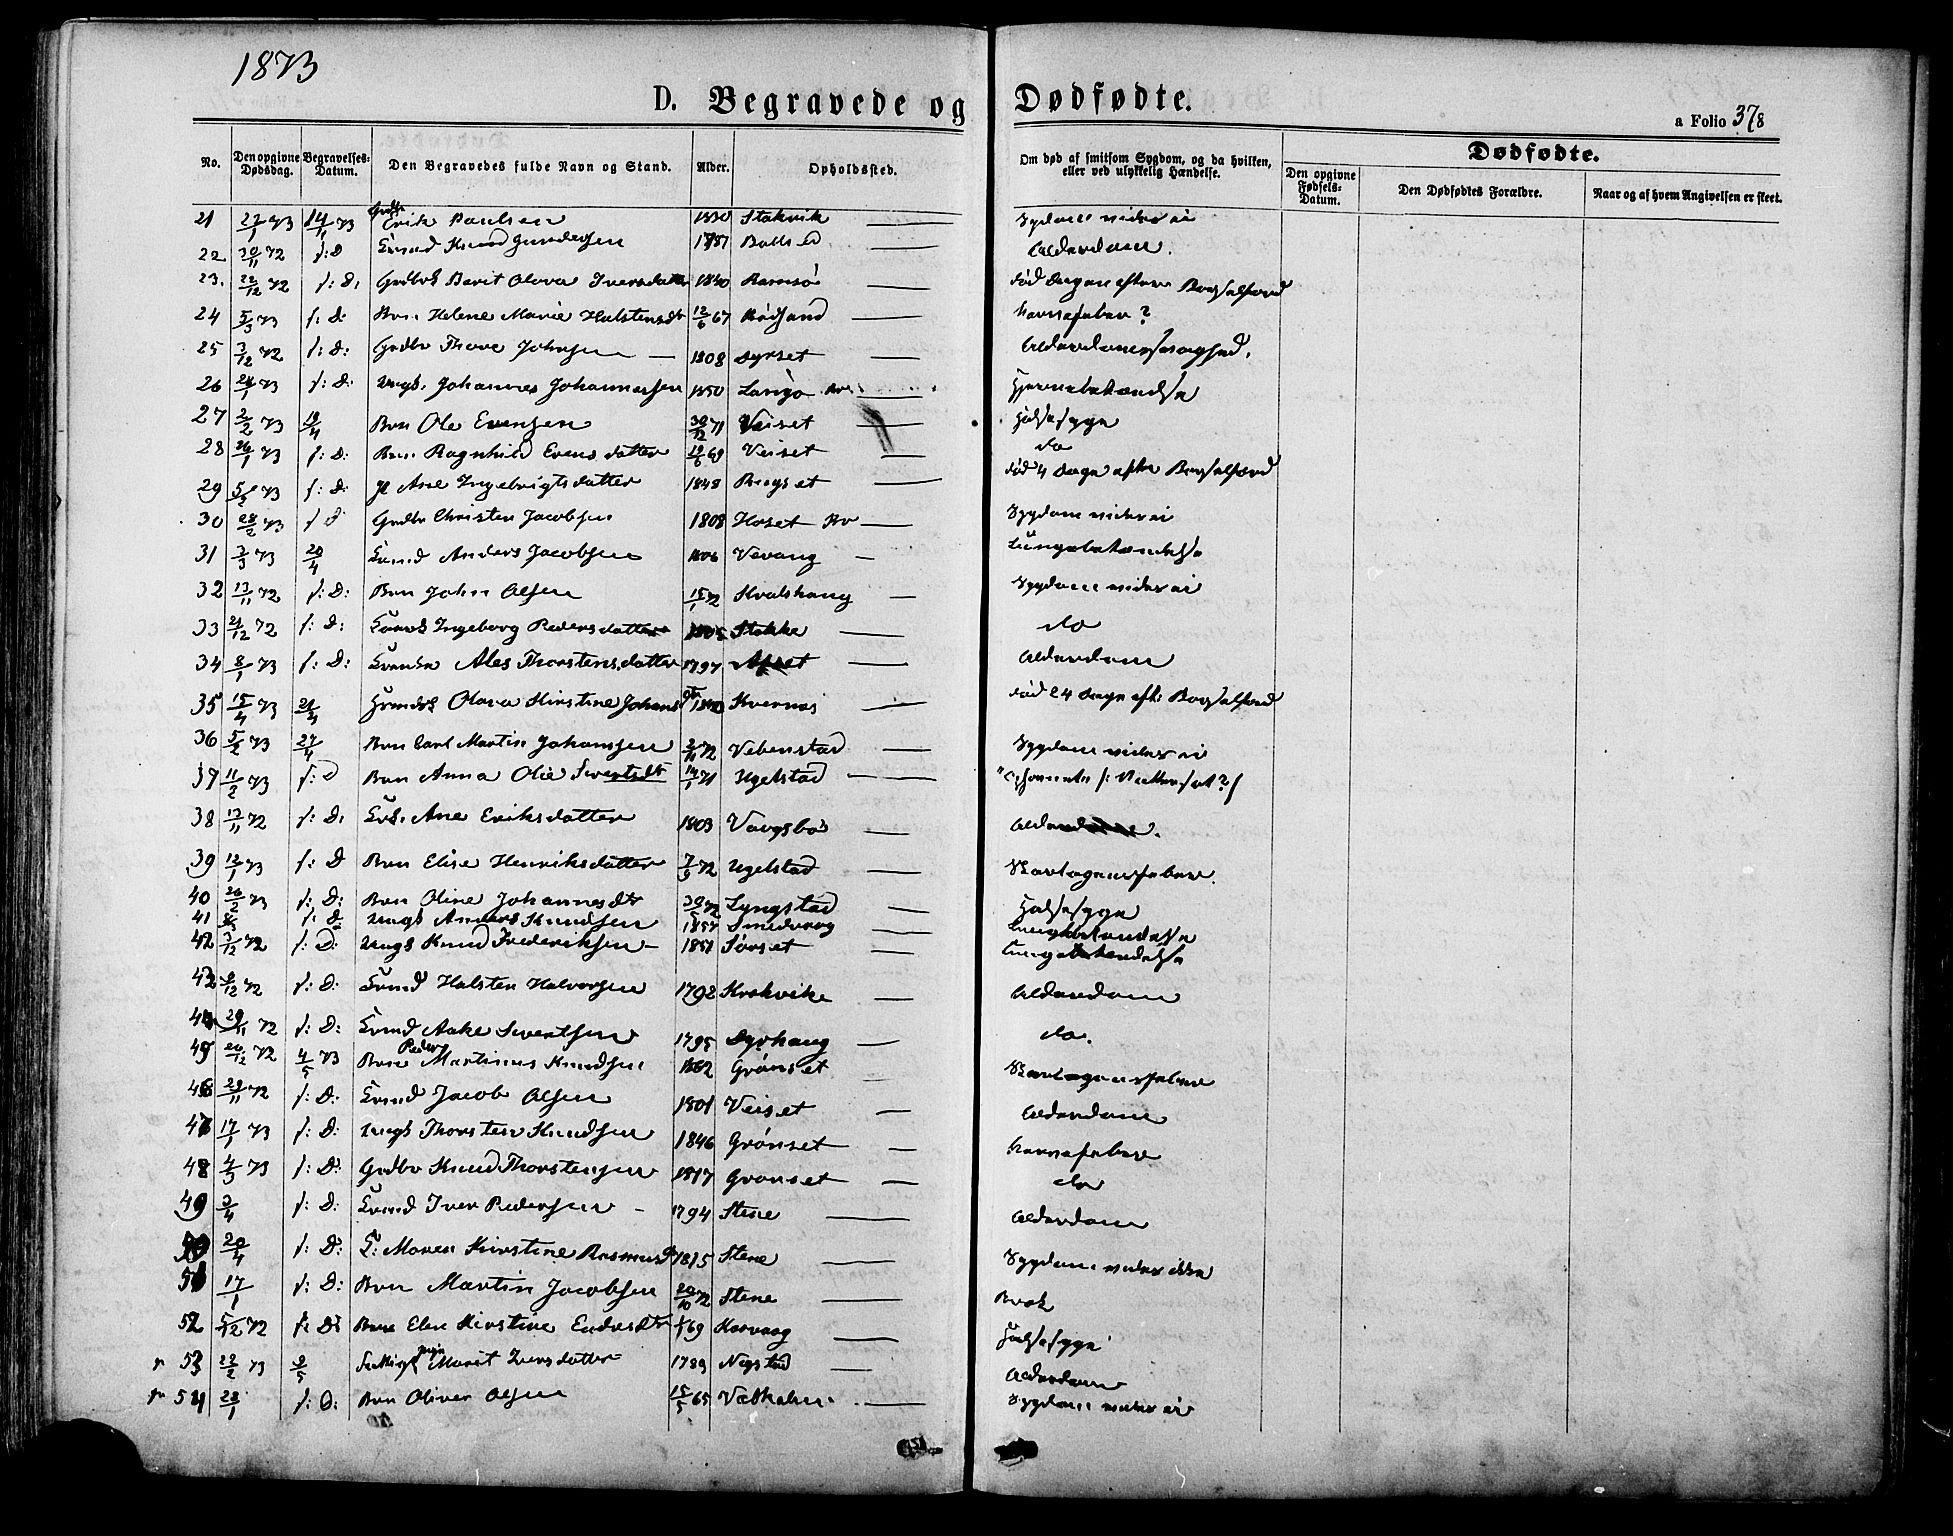 1873
D. Begravede og Dødfødte.
a Folio 378
No. Den opgivne Dødsdag. Begravelses-Datum. Den Begravedes fulde Navn og Stand. Alder. Opholdssted. Om død af smitsom Sygdom, og da hvilken, eller ved ulykkelig Hændelse. Dødfødte.
Den opgivne Fødsels-Datum. Den Dødfødtes Forældre. Naar og af hvem Angivelsen er sleet.
21 27/1 73 14/4 73 Erik Paulsen 1830 Stokvik Sygdom vides ei
22 30/11 72 s: D Knud Gundersen Alderdom.
23. 22/12 72 s: D: Berit Olova Iversdatter 1840 Ramsø død dagen efter Barselfærd
24 5/3 73 s: D: Barn Helene Marie Halstensdt 12/6 67 Rødsand Nervefeber?
25 3/12 72 s: D: Grdbr Thore Johnsen 1808 Dyrset
26 24/1 73 s: D: Ungk. Johannes Johannessen 1850 Langø Hjernebetændelse
27 2/2 73 19/4 Barn Ole Evensen 30/12 71 Veiset Halssyge
28 26/1 73 s: D: Barn Ragnhild Evensdatter 19/6 69 Veiset do
29 5/2 73 s: D: Ane Ingebrigtsdatter 1848 Bugset død 4 dage efter Barselfærd
30 28/2 73 s D Grdbr Christen Jacobsen 1808 Hoset Sygdom vides ei
31 3/3 73 20/4 Anders Jacobsen 1806 Vevang Lungebetændelse
32 13/11 72 s: D: Barn John Olsen 15/1 72 Kvalshaug Sygdom vides ei
33 21/12 72 s: D: Ingeborg Pedersdatter 1805 Stokke do
34 8/1 73 s: D: Ales Thorstensdatter 1797 Alderdom
35 15/4 73 Olava Kirstine Johansdtr Kvernes død 24 Dage eft: Barselfærd
36 5/2 73 27/4 Barn Carl Martin Johansen Vebenstad Sygdom vides ei
37 11/2 73 s: D Barn Anna Olie Sivertsdt 14/1 71 Ugelstad
38 13/11 72 s: D. Ane Eriksdatter 1803 Vaagsbø Alderdom.
39 12/1 73 s: D Barn Elise Henriksdatter 7/9 72 Ugelstad
40 26/2 73 s: D: Barn Oline Johannesdt Lyngstad Halssyge
41 s: D Ungk Anders Knudsen 1857 Smedvaag Lungebetændelse
42 3/12 72 s: D: Ungk Knud Frederiksen 1851 Sørset Lungebetændelse
43 9/12 72 s: D: Halsten Halvorsen 1792 Krokvike Alderdom
44 29/11 72 s: D: Aake Sivertsen 1795 Dyrhaug do.
45 20/12 72 4/5 73 Barn Peder Martinus Knudsen 1862 Grønset
46 29/11 72 s: D: Jacob Olsen 1801 Veiset Alderdom
47 17/1 73 s: D: Ungk Thorsten Knudsen 1846 Grønset Nervefeber
48 4/3 73 s: D: Grdbr Knud Thorstensen 1817 Grønset do
49 2/4 s: D: Iver Pedersen 1794 Stene Alderdom
50 20/4 s: D: Maren Kirstine Rasmusd 1815 Stene Sygdom vides ikke
51 17/1 s: D: Barn Martin Jacobsen 20/10 72 Stene Brok
52 5/12 72 s: D: Barn Elen Kirstine Endresdtr Korvaag Halssyge
53 22/2 73 2/5 Marit Iversdatter 1789 Negstad Alderdom
54 28/1 s: D: Barn Oliver Olsen 15/5 65 Sygdom vides ei